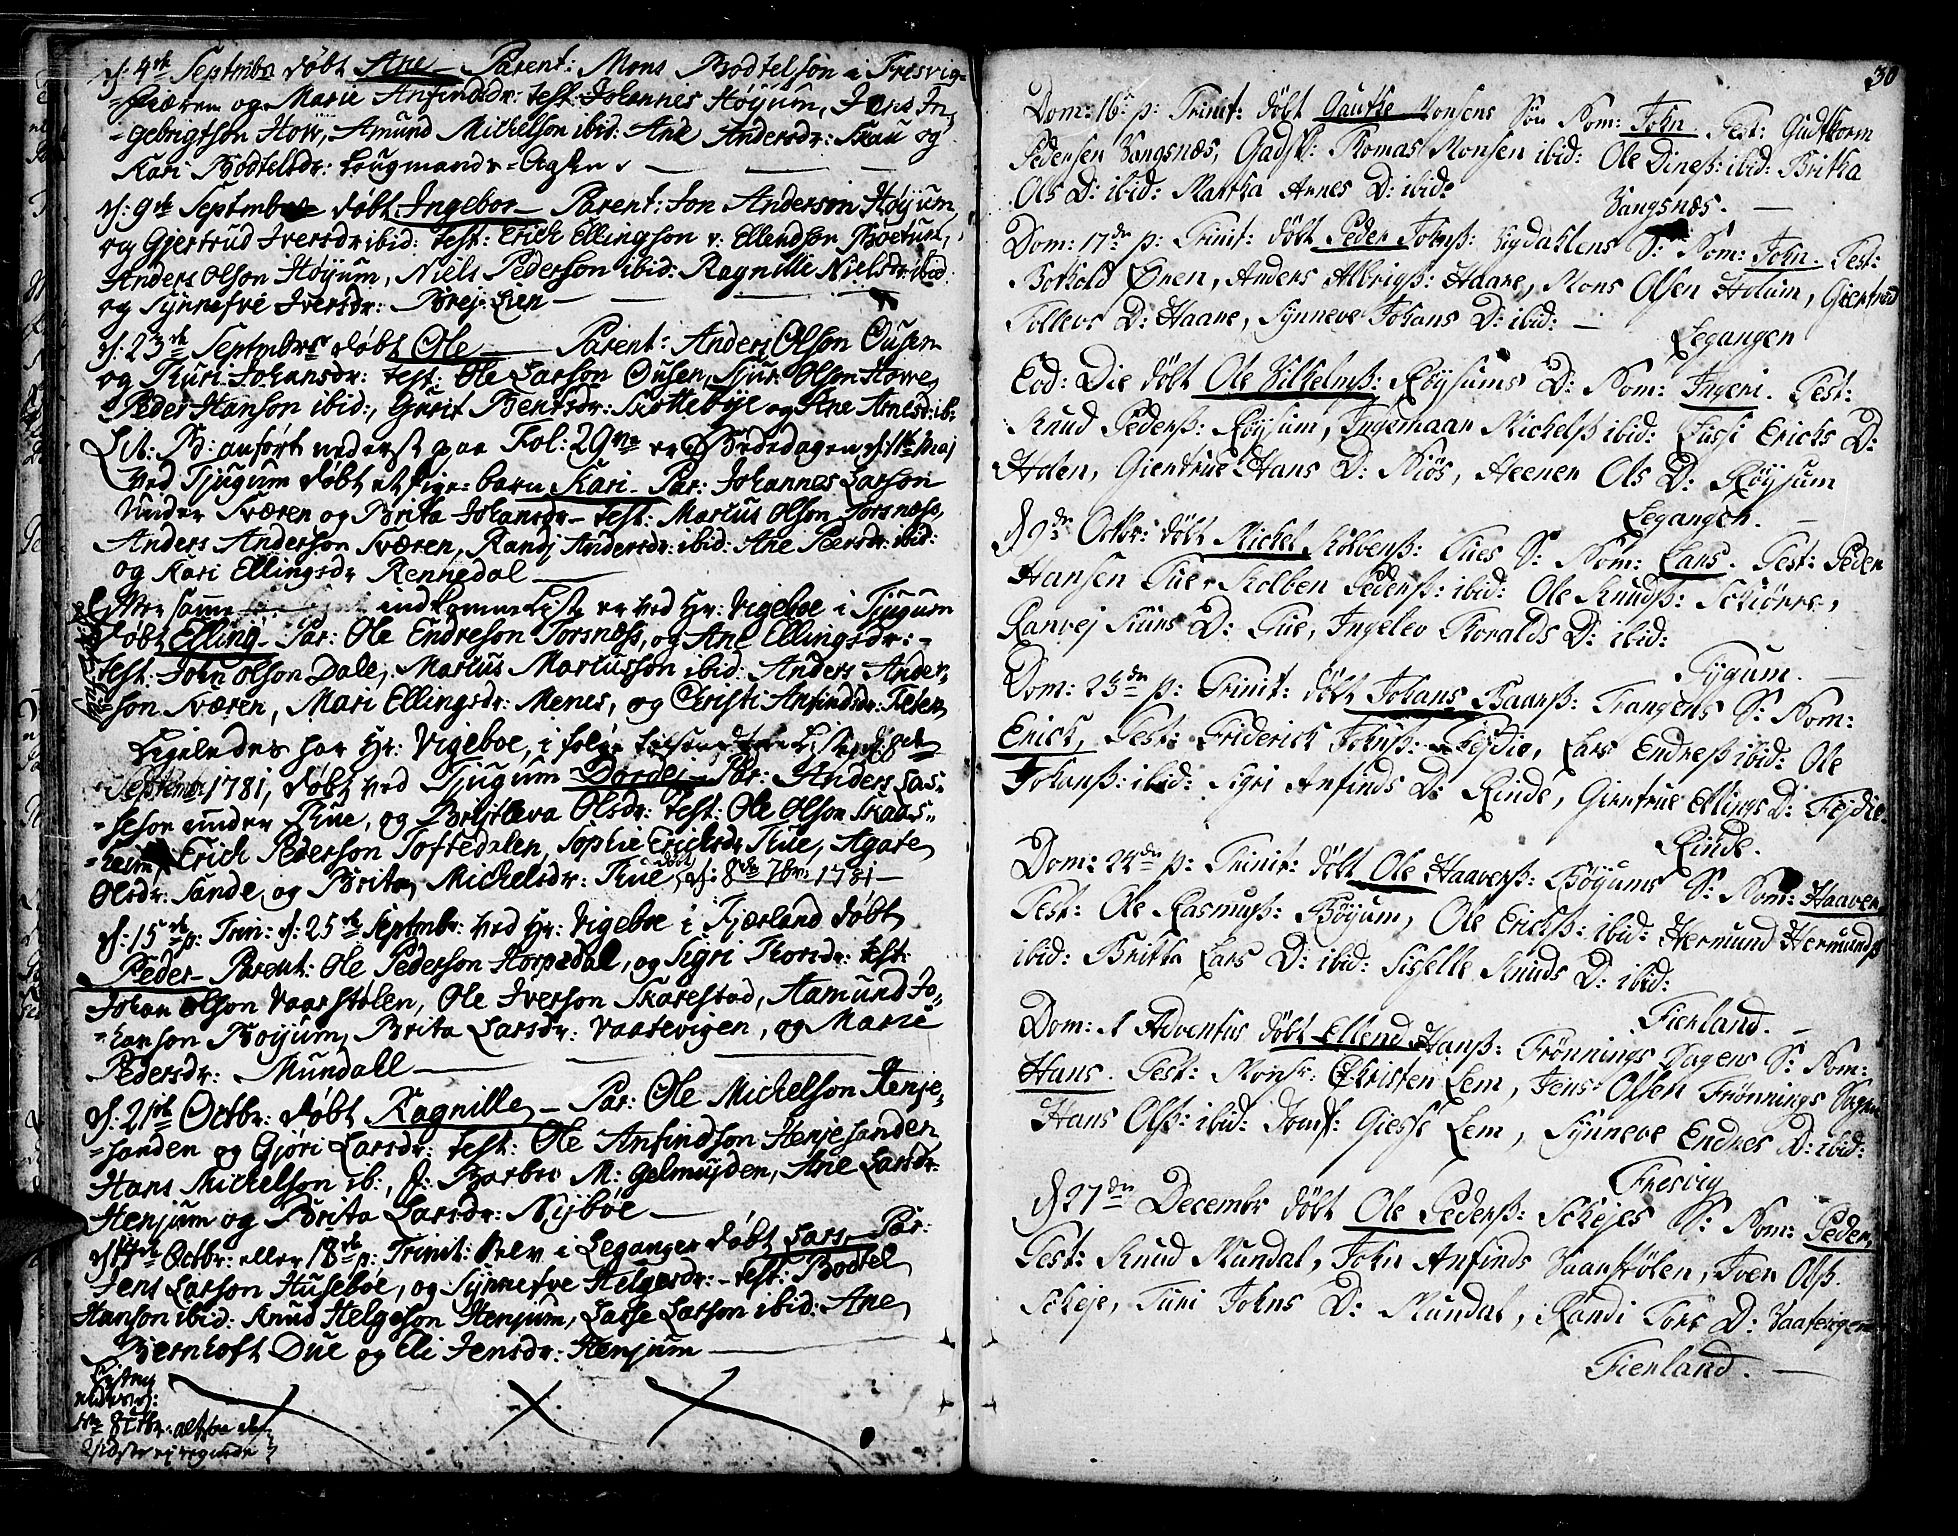 d: 4de Septmbr døbt Ane Parent: Mons Bodtelson i Fresvig-
=Fiæren og Marie Anfindsdr: test: Johannes Høyum, Jens In,
=gebrigtson Hove, Amund Michelson ibid: Ane Andersdr: Skau og
Kari Bodtelsdr: Lougmands-Agh
d: 9de Septmbr døbt Ingebor Parent: Jon Anderson Høyum,
og Gjertrud Iversdr ibid: test: Erich Ellingson v: Ellendson Böetun,
Anders Olson Høyum, Niels Pederson ibid: Ragnille Nielsdr: ibid
og Synnefve Iversdr: Brej: Lien
d: 23de Septmbrs døbt Ole Parent: Anders Olson Ousen
og Thuri Johansdr: test: Ole Larson Ousen, Sjur Olson Howe,
Peder Hanson ibid:, Gurit Bentsdr: Skotteböe og Ane Arnesdr: ib:
Lit: B: anført nederst paa Fol: 29 er Bededagen d: 11te Maj
ved Tjugum døbt et Pige-barn Kari Par: Johannes Larson
under Sværen og Brita Johansdr - test: Marcus Olson Torsnæss,
Anders Anderson Sværen, Randj Andersdr: ibid: Ane Peersdr: ibid:
og Kari Ellingsdr Rennedal
Efter samme indkomne Liste er ved Hr: Vigeboe i Tjugum
døbt Elling Par: Ole Endreson Torsness, og Ane Ellingsdr:-
test: John Olson Dale, Marcus Marcusson ibid: Anders Ander,
son Sværen, Mari Ellingsdr: Menes, og Christi Anfindsdr: Feten
Ligeledes har Hr: Vigeboe, i følge Liste d: 8de
Septembr 1781, døbt ved Tjugum Dordej Par: Anders Las-
=seson under Thue, og Britleva Olsdr: test: Ole Olson Skaas-
=heim, Erich Pederson Toftedalen, Sophie Erichsdr Thue, Agate
Olsdr: Sande, og Brita Michelsdr: Thue, døbt d: 8de 7br: 1781
d: 15de p: Trin: d: 25de Septmbr: ved Hr: Vigeboe i Fjærland døbt
Peder Parent: Ole Pederson Horpedal, og Sigri Thorsdr: test:
Johan Olson Vaarstølen, Ole Iverson Skarestad, Aamund Jo-
=hanson Bøyum, Brita Larsdr: Vaatevigen, og Marie
Pedersdr: Mundall
d: 21de Octbr: døbt Ragnille Par: Ole Michelson Henje-
=sanden og Gjøri Larsdr: test: Ole Anfindson Henjesanden,
Hans Michelson ib:, J: Barbro M: Gelmuyden, Ane Larsdr:
Henjum og Brita Larsdr: Nyböe
d: 14de Octbr: eller 18de p: Trinit: Selv i Leganger døbt Lars Par:
Jens Larson Huseböe, og Synnefve Helgesdr: - test: Bodtel
Hanson ibid: Knud Helgeson Henjum, Lasse Larson ibid: Ane
Bernhoft Due og Eli Jensdr: Henjum
30
Dom: 16de p: Trinit: döbt Gautke Monsens Sön Nom: John. Test: Gudtkorm
Pedersen Vangsnæs, Gadsk: Thomas Monsen ibid: Ole Dineß: ibid: Britha
Ols D: ibid: Martha Arnes D: ibid:
Vangsnæs.
Dom: 17de p: Trinit: döbt Peder Johnß: Sygdahlens S: Nom: John. Test:
Bothold Ønen, Anders Albrigß: Haare, Mons Olsen Holum, Giertrud
Tollevs D: Haane, Synneve Johans D: ibid:
Legangen
Eod: Die döbt Ole Vilhelmß: Röysums D: Nom: Ingeri. Test:
Knud Pederß: Röysum, Ingemaar Michelß ibid: Sussi Ericks D:
Holen, Giertrue Hans D: Niös, Heener Ols D: Röysum
Legangen.
d 9de Octbr: döbt Michel Kolbenß: Tues S: Nom: Lars. Test: Peder
Hansen Tue, Kolben Pederß: ibid: Ole Knudß: Schiörre,
Ranvej Siurs D: Tue, Ingelev Roralds D: ibid:
Tygum.
Dom: 23de p: Trinit: döbt Johans Baarß: Trangens S: Nom:
Erick, Test: Friderick Johnß: Fejdie, Lars Endreß ibid: Ole
Johanß: ibid: Sigri Anfinds D: Rinde, Giertrue Ellings D: Fejdie.
Rinde.
Dom: 24de p: Trinit: döbt Ole Haaverß: Böyums S: Nom: Haaver,
Test: Ole Rasmusß: Böyum, Ole Erickß: ibid: Hermund Hermundß
ibid: Britha Lars D: ibid: Sisselle Knuds D: ibid:
Fierland.
Dom: 1 Adventus döbt Ellend Hanß: Frönnings Hagens S: Nom:
Hans. Test: Monsr: Christen Lem, Jens Olsen Frönnings Hagen
Hans Olß: ibid: Jomf: Giesse Lem, Synneve Endres D: ibid:
Fresvig
d 27de Decembr döbt Ole Pederß: Schejes S: Nom: Peder,
Test: Knud Mundal, John Anfinds Vaarstölen, Iver Olß.
Scheje, Turi Johns D: Mundal, Randi Tors D: Vaatevigen
Fierland.